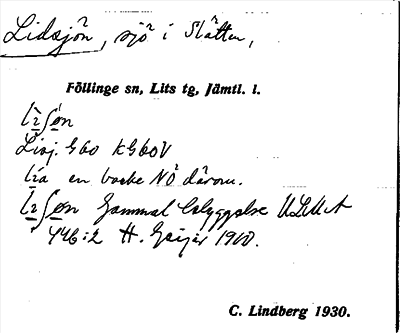 Lidsjön, sjö i Slätten,
Föllinge sn, Lits tg, Jämtl. l.
Lisj. G60 KG60V
en backe NÖ därom.
Gammal bebyggelse ULMA
446:2 H. Geijer 1900.
C. Lindberg 1930.